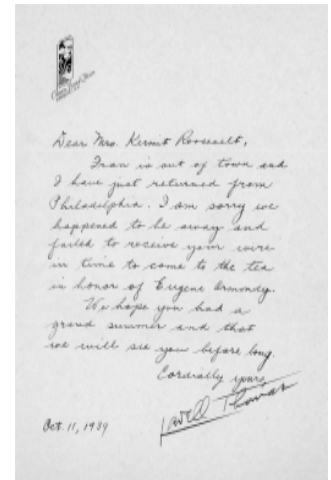 Dear Mrs. Kermit Roosevelt,
Fran is out of town and
I have just returned from
Philadelphia. I am sorry we
happened to be away and
failed to receive your wire
in time to come to the tea
in honor of Eugene Ormandy.
We hope you had a
grand summer and that
we will see you before long.
Cordially yours,
Lowell Thomas
Oct. 11, 1939